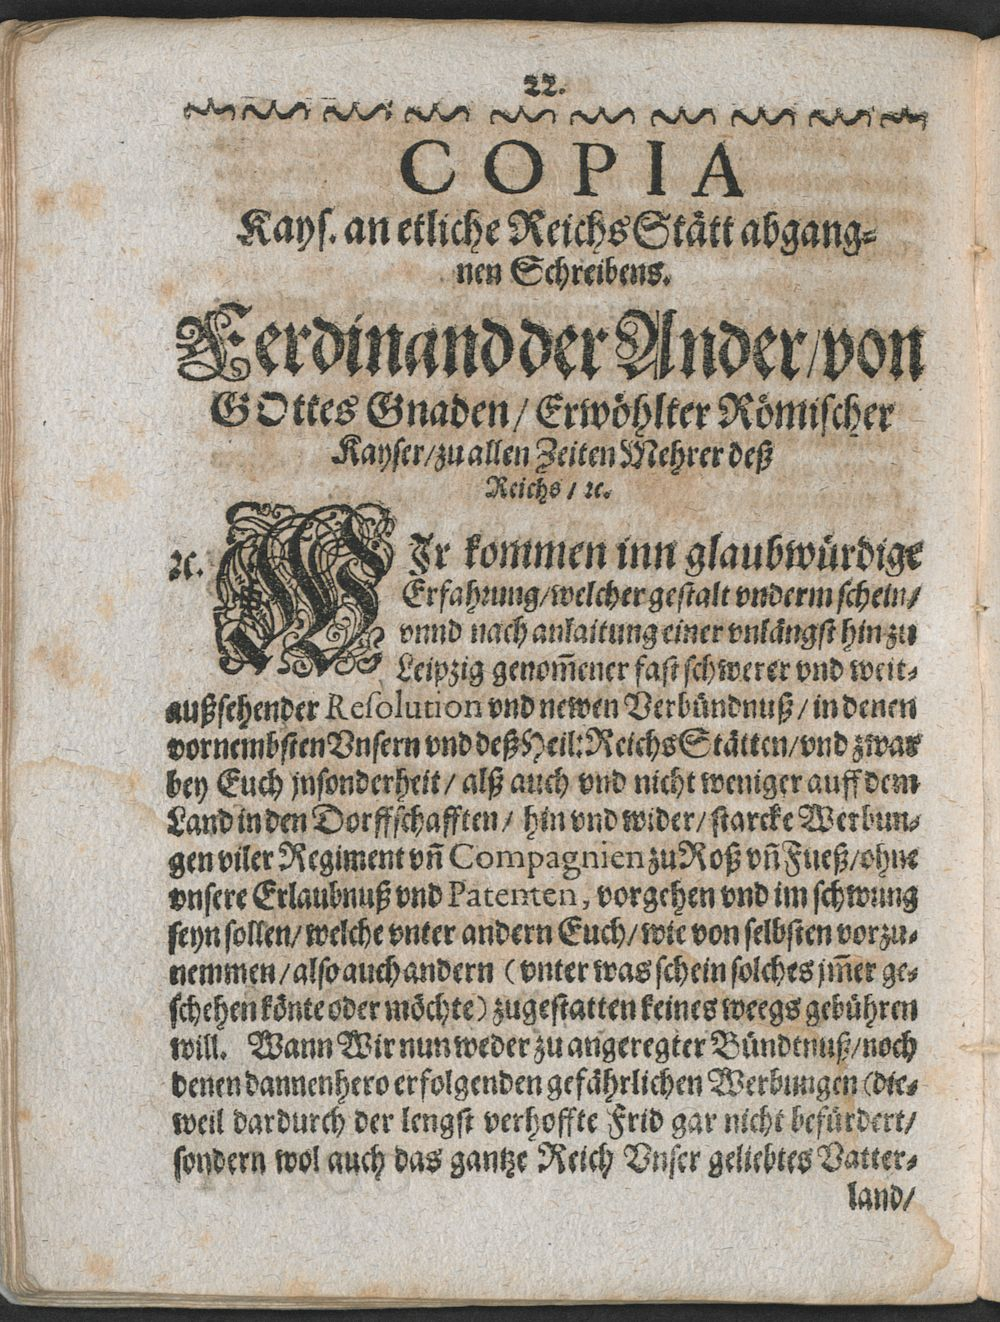 22.
COPIA
Kays. an etliche ReichsStätt abgang-
nen Schreibens.
Ferdinand der Ander/von
GOttes Gnaden/Erwöhlter Römischer
Kayser/zu allen Zeiten Mehrer deß
Reichs/ꝛc.
ꝛc. WIr kommen inn glaubwürdige
Erfahrung/welcher gestalt vnderm schein/
vnnd nach anlaitung einer vnlängst hin zu
Leipzig genom̄ener fast schwerer vnd weit-
außsehender Resolution vnd newen Verbündnuß/in denen
vornembsten Vnsern vnd deß Heil: Reichs Stätten/vnd zwar
bey Euch jnsonderheit/alß auch vnd nicht weniger auff dem
Land in den Dorffschafften/hin vnd wider/starcke Werbun-
gen viler Regiment vn̄ Compagnien zu Roß vn̄ Fueß/ohne
vnsere Erlaubnuß vnd Patenten, vorgehen vnd im schwung
seyn sollen/welche vnter andern Euch/wie von selbsten vorzu-
nemmen/also auch andern (vnter was schein solches jm̄er ge-
schehen könte oder möchte) zugestatten keines weegs gebühren
will. Wann Wir nun weder zu angeregter Bündtnuß/noch
denen dannenhero erfolgenden gefährlichen Werbungen (die-
weil dardurch der lengst verhoffte Frid gar nicht befürdert/
sondern wol auch das gantze Reich Vnser geliebtes Vatter-
land/